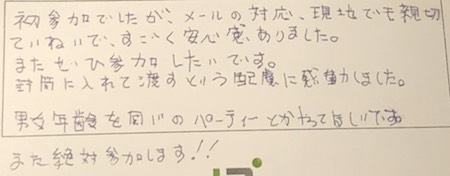 初参加でしたが、メールの対応、現地でも親切
ていねいで、すごく安心感、ありました。
またぜひ参加したいです。
封筒に入れて渡すという配慮に感動しました。
男女年齢を同じのパーティーとかやってほしいです
また絶対参加します!!